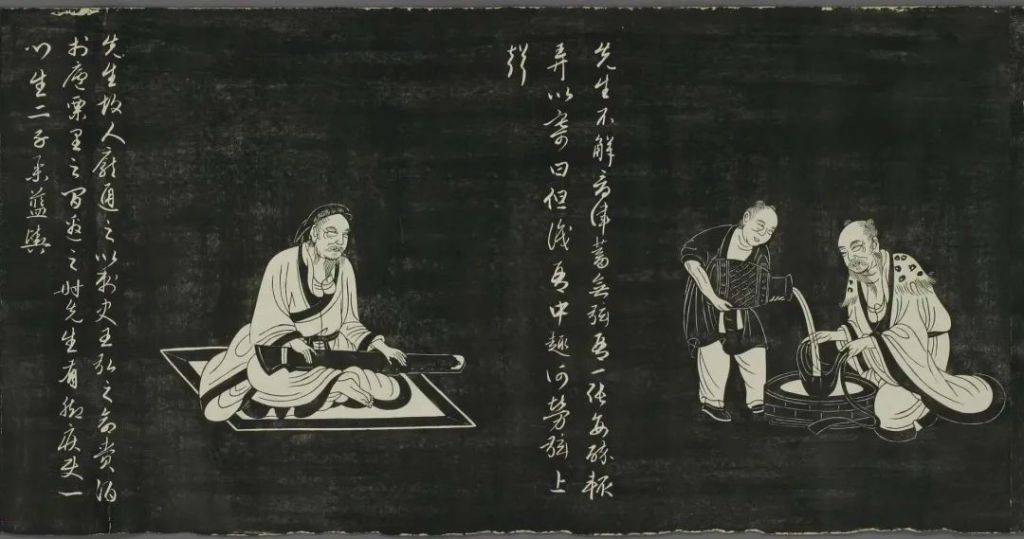 先生不解音律蓄無弦琴一張每醉輒
弄以寄曰但識琴中趣何勞弦上
聲
先生故人龐通之以刺史王弘之命賫酒
於廬栗里之間邀之時先生有脚疾使一
門生二子舁藍輿